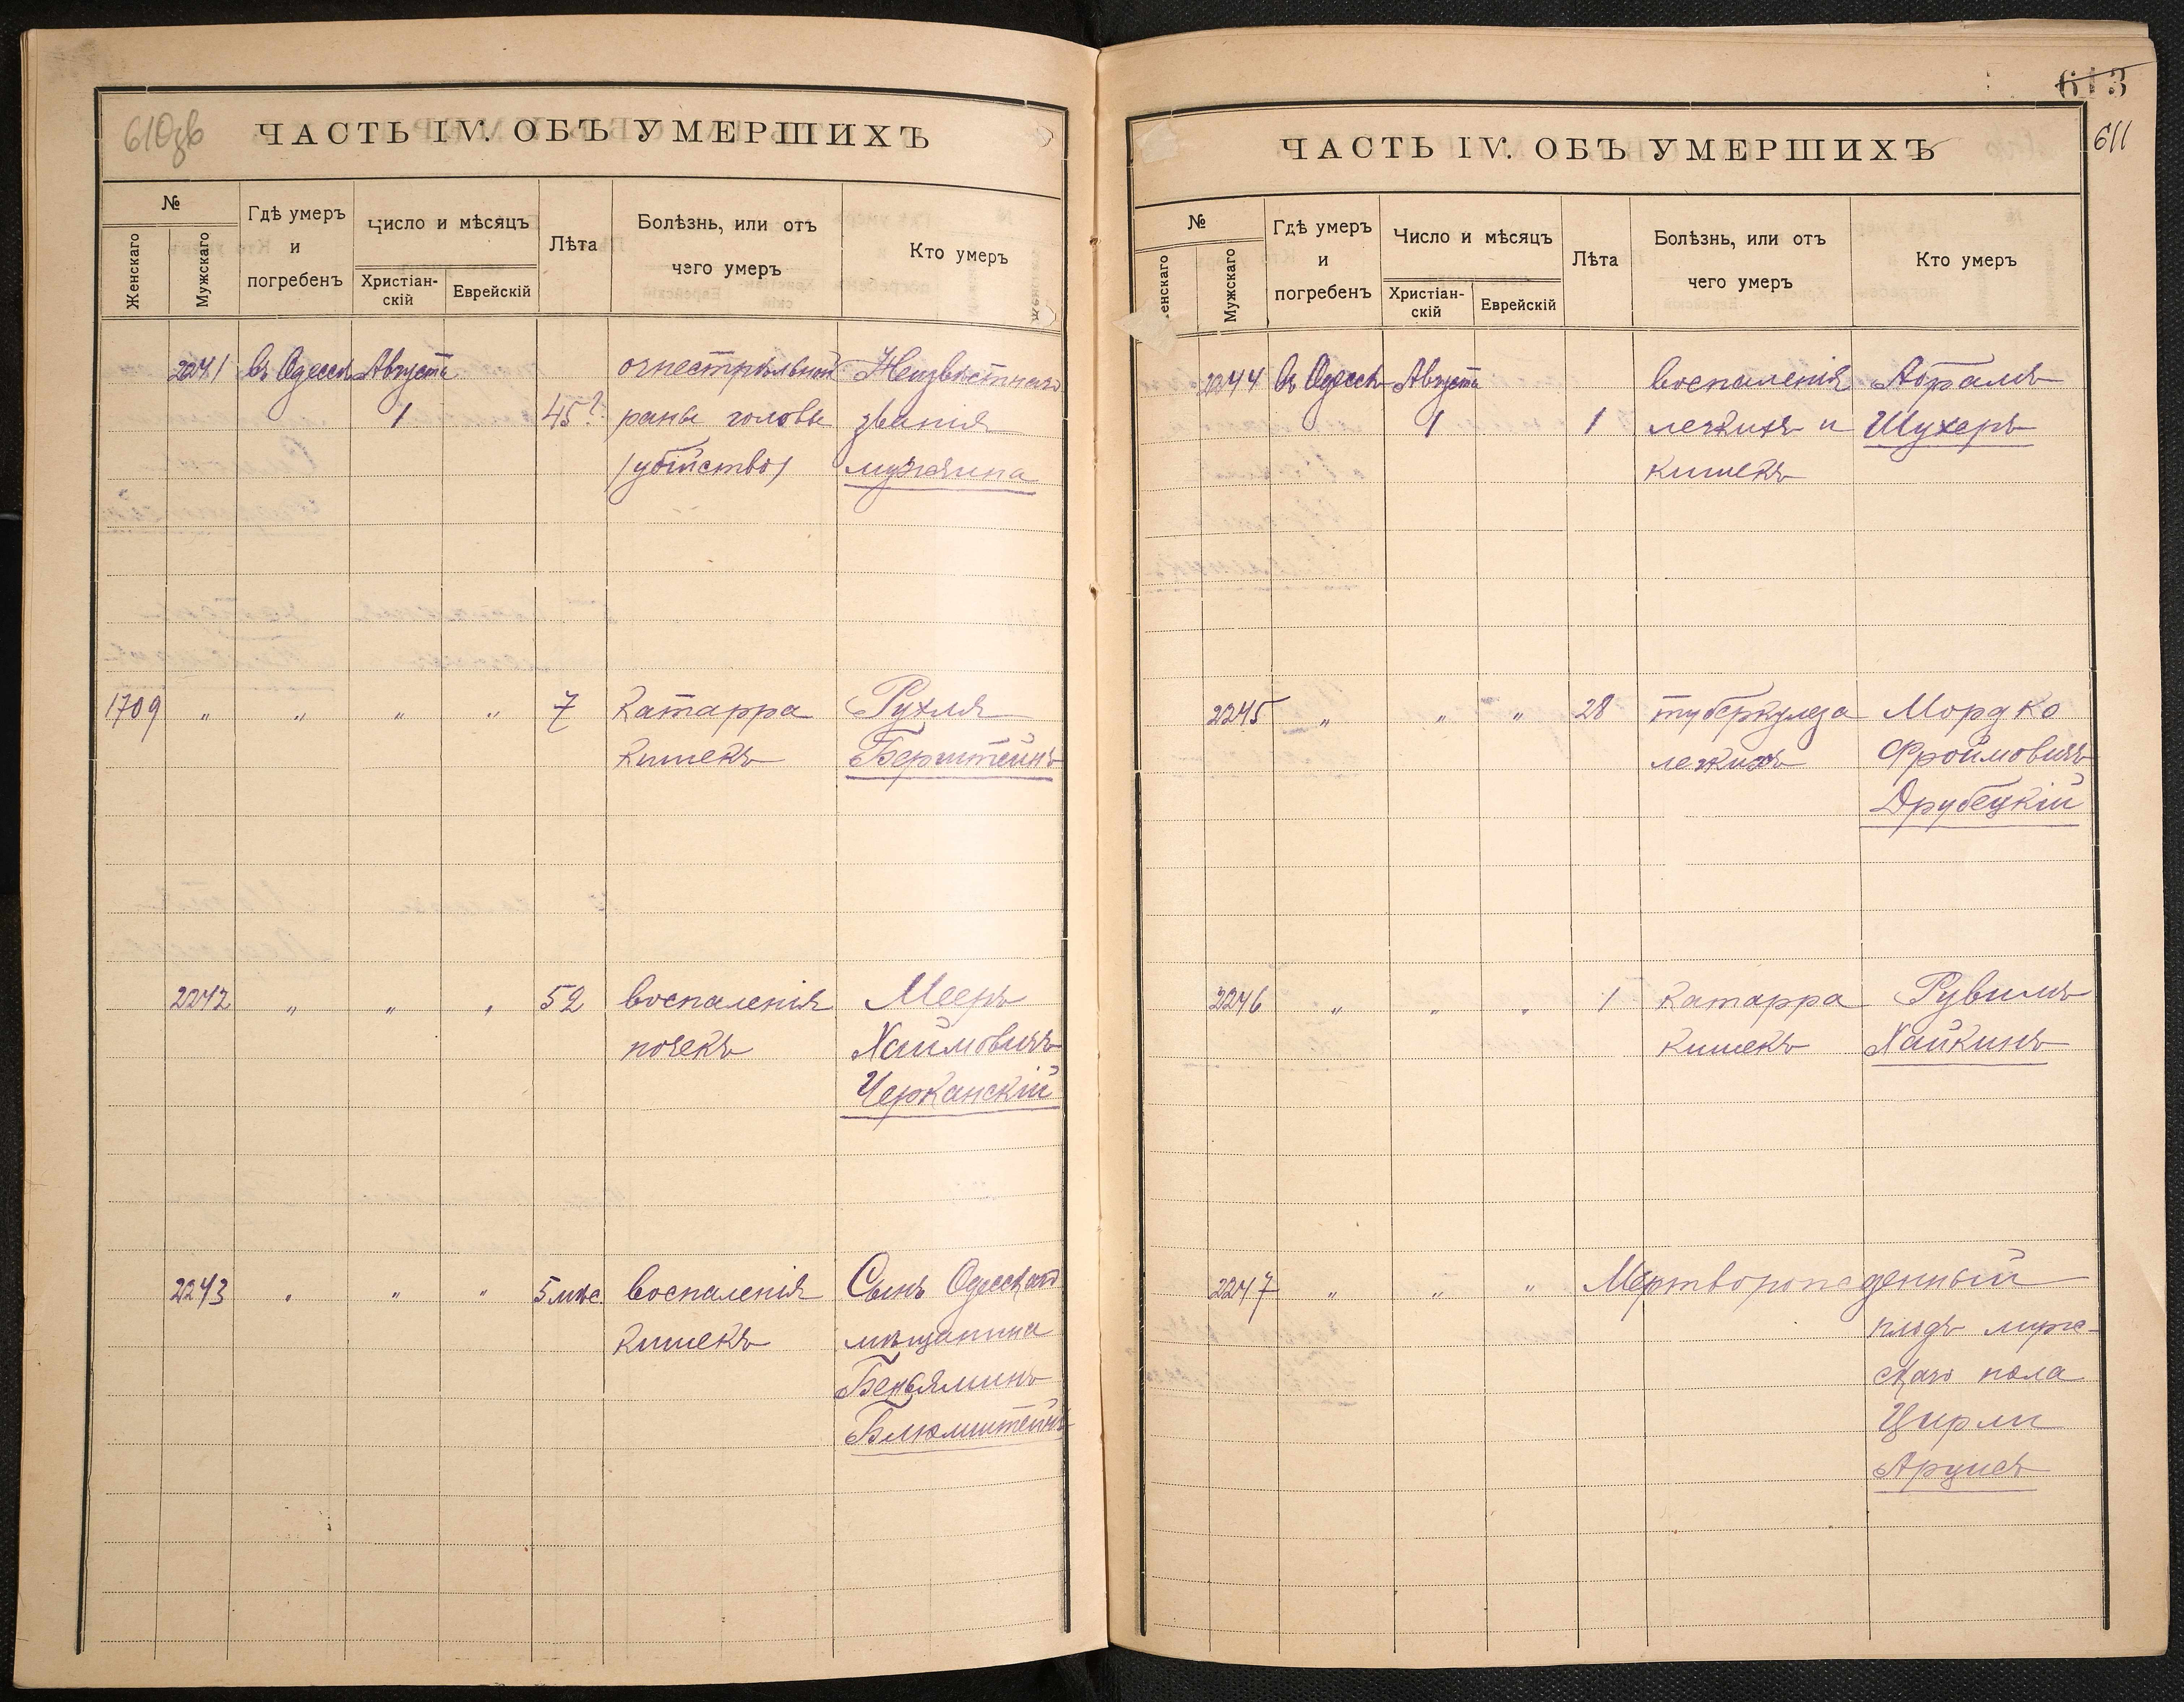 610 об
ЧАСТЬ IV. ОБЪ УМЕРШИХЪ
№
Женскаго
Мужскаго
Гдѣ умеръ и погребенъ
Число и мѣсяцъ
Христіан-скій
Еврейскій
Лѣта
Болѣзнь, или отъ чего умеръ
Кто умеръ
2241 Въ Одессѣ Августа огнестрѣльной Неизвѣстнаго
1 45? раны головы званія
(убійство) мужчина
1709 " " " " 7 Катарра Рухля
кишекъ Берштейнъ
2242 " " " 52 Воспаленія Мееръ
почекъ Хаимовичъ
Черканскій
2243 " " " 5 мѣс. Воспаленія Сынъ Одесскаго
кишекъ мѣщанина
Беньяминъ
Блюмштейнъ
613
611
ЧАСТЬ IV. ОБЪ УМЕРШИХЪ
№
енскаго
Мужскаго
Гдѣ умеръ и погребенъ
Число и мѣсяцъ
Христіан-скій
Еврейскій
Лѣта
Болѣзнь, или отъ чего умеръ
Кто умеръ
2244 Въ Одессѣ Августа Воспаленія Абрамъ
1 1 легкихъ и Шухеръ
кишекъ
2245 " " " 28 туберкулеза Мордко
легкихъ Фроимовичъ
Друбецкій
2246 " " " 1 Катарра Рувимъ
кишекъ Хайкинъ
2247 " " " Мертворожденный
плодъ муж-
скаго пола
Цирли